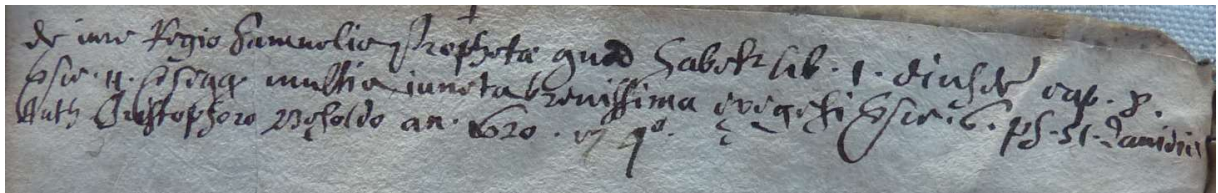 de iure Regio Samuelis Prophetæ quod habetur lib. 1. eiusdē cap. 8.
multis iuncta brevissima exegesi 6. ps. 51. Davidis
Auth Christophoro Besoldo an. 620. in 4º.